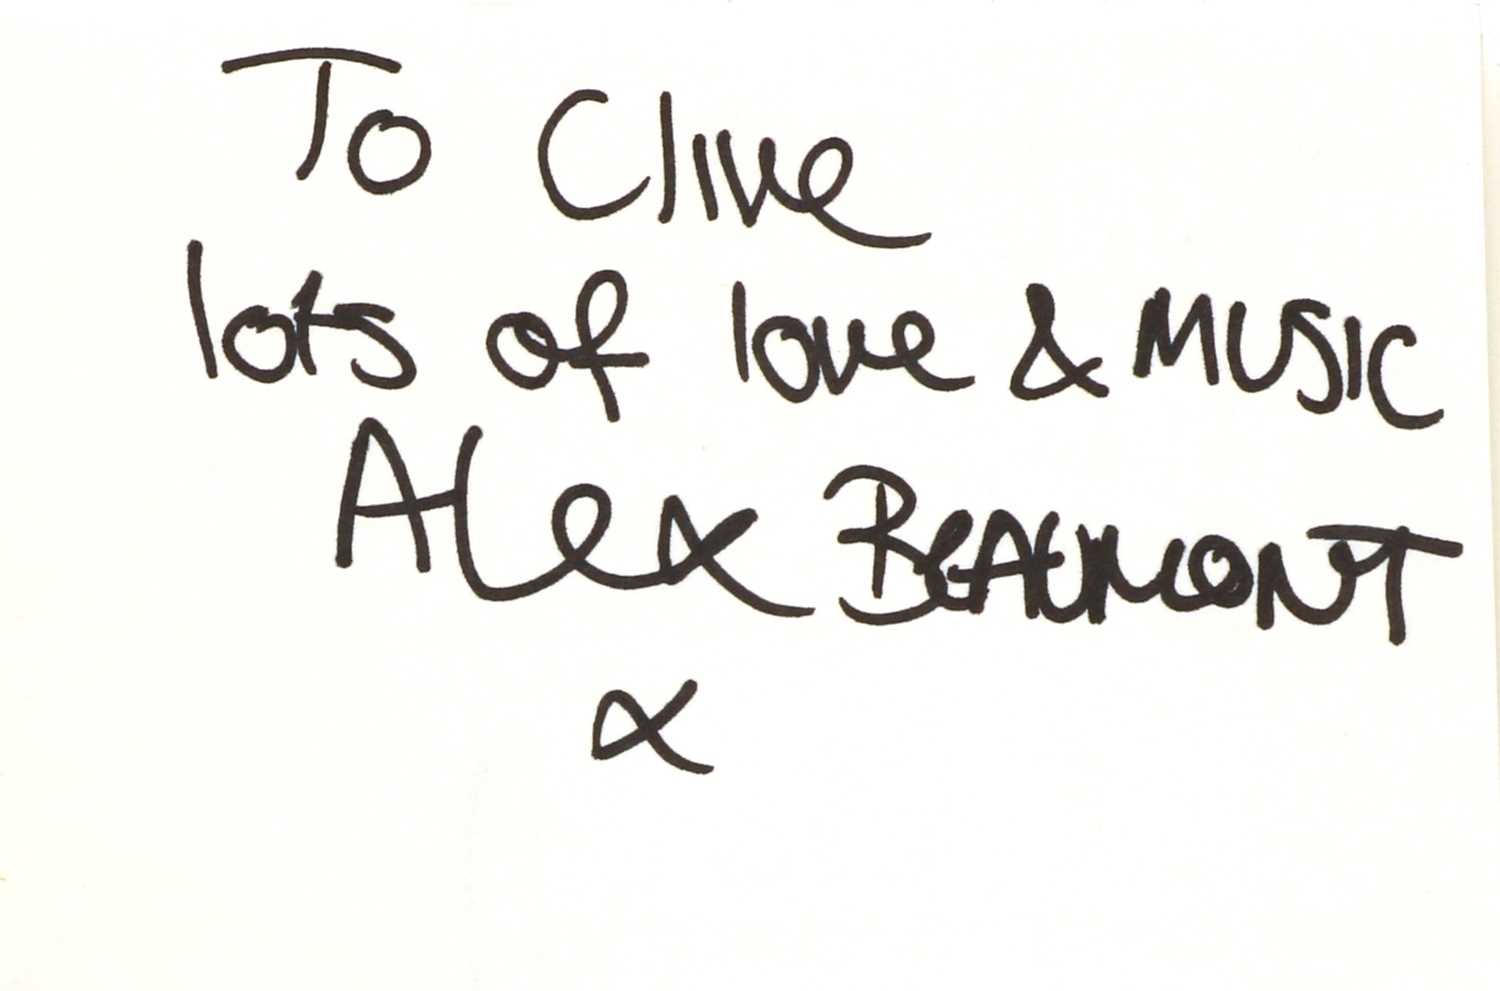 To Clive
lots of love & MUSIC
Alex BEAUMONT
x